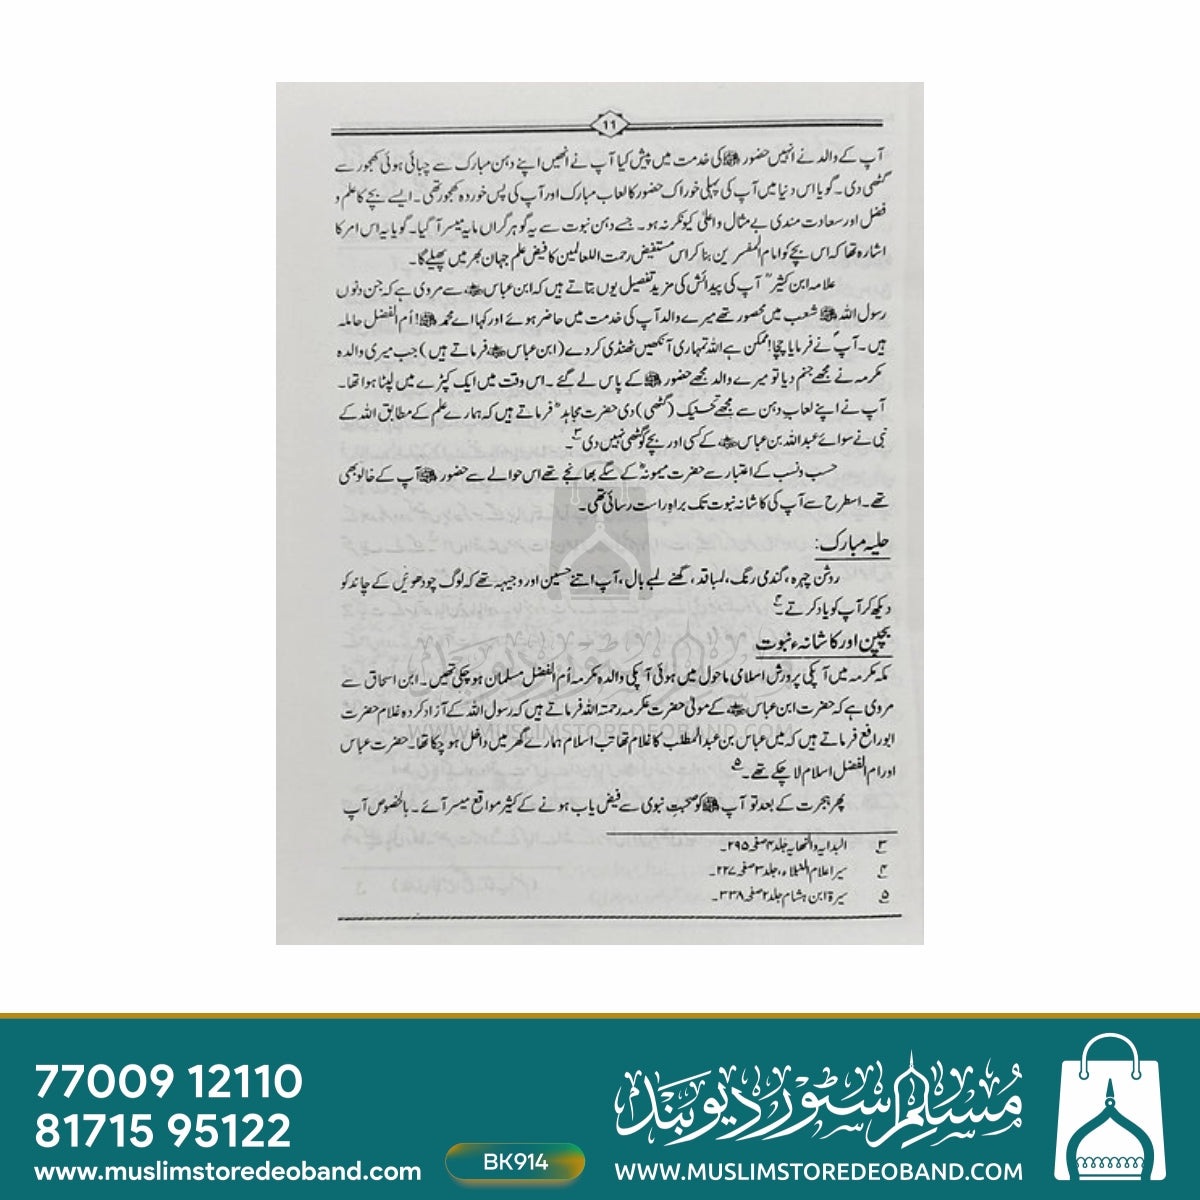 11
آپ کے والد نے انہیں حضور ﷺ کی خدمت میں پیش کیا آپ نے انھیں اپنے دہن مبارک سے چبائی ہوئی کھجور سے
گٹھی دی۔ گویا اس دنیا میں آپ کی پہلی خوراک حضور کا لعاب مبارک اور آپ کی پس خوردہ کھجور تھی۔ ایسے بچے کا علم و
فضل اور سعادت مندی بے مثال و اعلیٰ کیونکر نہ ہو۔ جسے دہن نبوت سے یہ گوہر گراں مایہ میسر آ گیا۔ گویا یہ اس امر کا
اشارہ تھا کہ اس بچے کو امام المفسرین بنا کر اس مستفیض رحمت اللعالمین کا فیض علم جہان بھر میں پھیلے گا۔
علامہ ابن کثیرؒ آپ کی پیدائش کی مزید تفصیل یوں بتاتے ہیں کہ ابن عباسؓ سے مروی ہے کہ جن دنوں
رسول اللہ ﷺ شعب میں محصور تھے میرے والد آپ کی خدمت میں حاضر ہوئے اور کہا اے محمد ﷺ! اُم الفضل حاملہ
ہیں۔ آپؐ نے فرمایا چچا! ممکن ہے اللہ تمہاری آنکھیں ٹھنڈی کر دے (ابن عباسؓ فرماتے ہیں) جب میری والدہ
مکرمہ نے مجھے جنم دیا تو میرے والد مجھے حضور ﷺ کے پاس لے گئے۔ اس وقت میں ایک کپڑے میں لپٹا ہوا تھا۔
آپ نے اپنے لعاب دہن سے مجھے تحنیک (گٹھی) دی حضرت مجاہدؒ فرماتے ہیں کہ ہمارے علم کے مطابق اللہ کے
نبی نے سوائے عبداللہ بن عباسؓ کے کسی اور بچے کو گٹھی نہیں دی ۳۔
حسب و نسب کے اعتبار سے حضرت میمونہؓ کے سگے بھانجے تھے اس حوالے سے حضور ﷺ آپ کے خالو بھی
تھے۔ اسطرح سے آپ کی کاشانہ نبوت تک براہ راست رسائی تھی۔
حلیہ مبارک:
روشن چہرہ، گندمی رنگ، لمبا قد، گھنے لمبے بال، آپ اتنے حسین اور وجیہہ تھے کہ لوگ چودھویں کے چاند کو
دیکھ کر آپ کو یاد کرتے۔ ۴
بچپن اور کاشانہء نبوت
مکہ مکرمہ میں آپکی پرورش اسلامی ماحول میں ہوئی آپکی والدہ مکرمہ اُم الفضل مسلمان ہو چکی تھیں۔ ابن اسحاق سے
مروی ہے کہ حضرت ابن عباسؓ کے مولیٰ حضرت عکرمہ رحمتہ اللہ فرماتے ہیں کہ رسول اللہ کے آزاد کردہ غلام حضرت
ابورافع فرماتے ہیں کہ میں عباس بن عبدالمطلب کا غلام تھا تب اسلام ہمارے گھر میں داخل ہو چکا تھا۔ حضرت عباس
اور ام الفضل اسلام لا چکے تھے۔ ۵
پھر ہجرت کے بعد تو آپ ﷺ کو صحبت نبوی سے فیض یاب ہونے کے کثیر مواقع میسر آئے۔ بالخصوص آپ
۳ البدایہ والنھایہ جلد ۴ صفحہ ۲۹۵۔
۴ سیر اعلام النبلاء، جلد ۳ صفحہ ۲۲۷۔
۵ سیرۃ ابن ہشام جلد ۲ صفحہ ۳۳۸۔
مسلم سٹور دیوبند
WWW.MUSLIMSTOREDEOBAND.COM
77009 12110
81715 95122
www.muslimstoredeoband.com
BK914
مسلم سٹور دیوبند
WWW.MUSLIMSTOREDEOBAND.COM